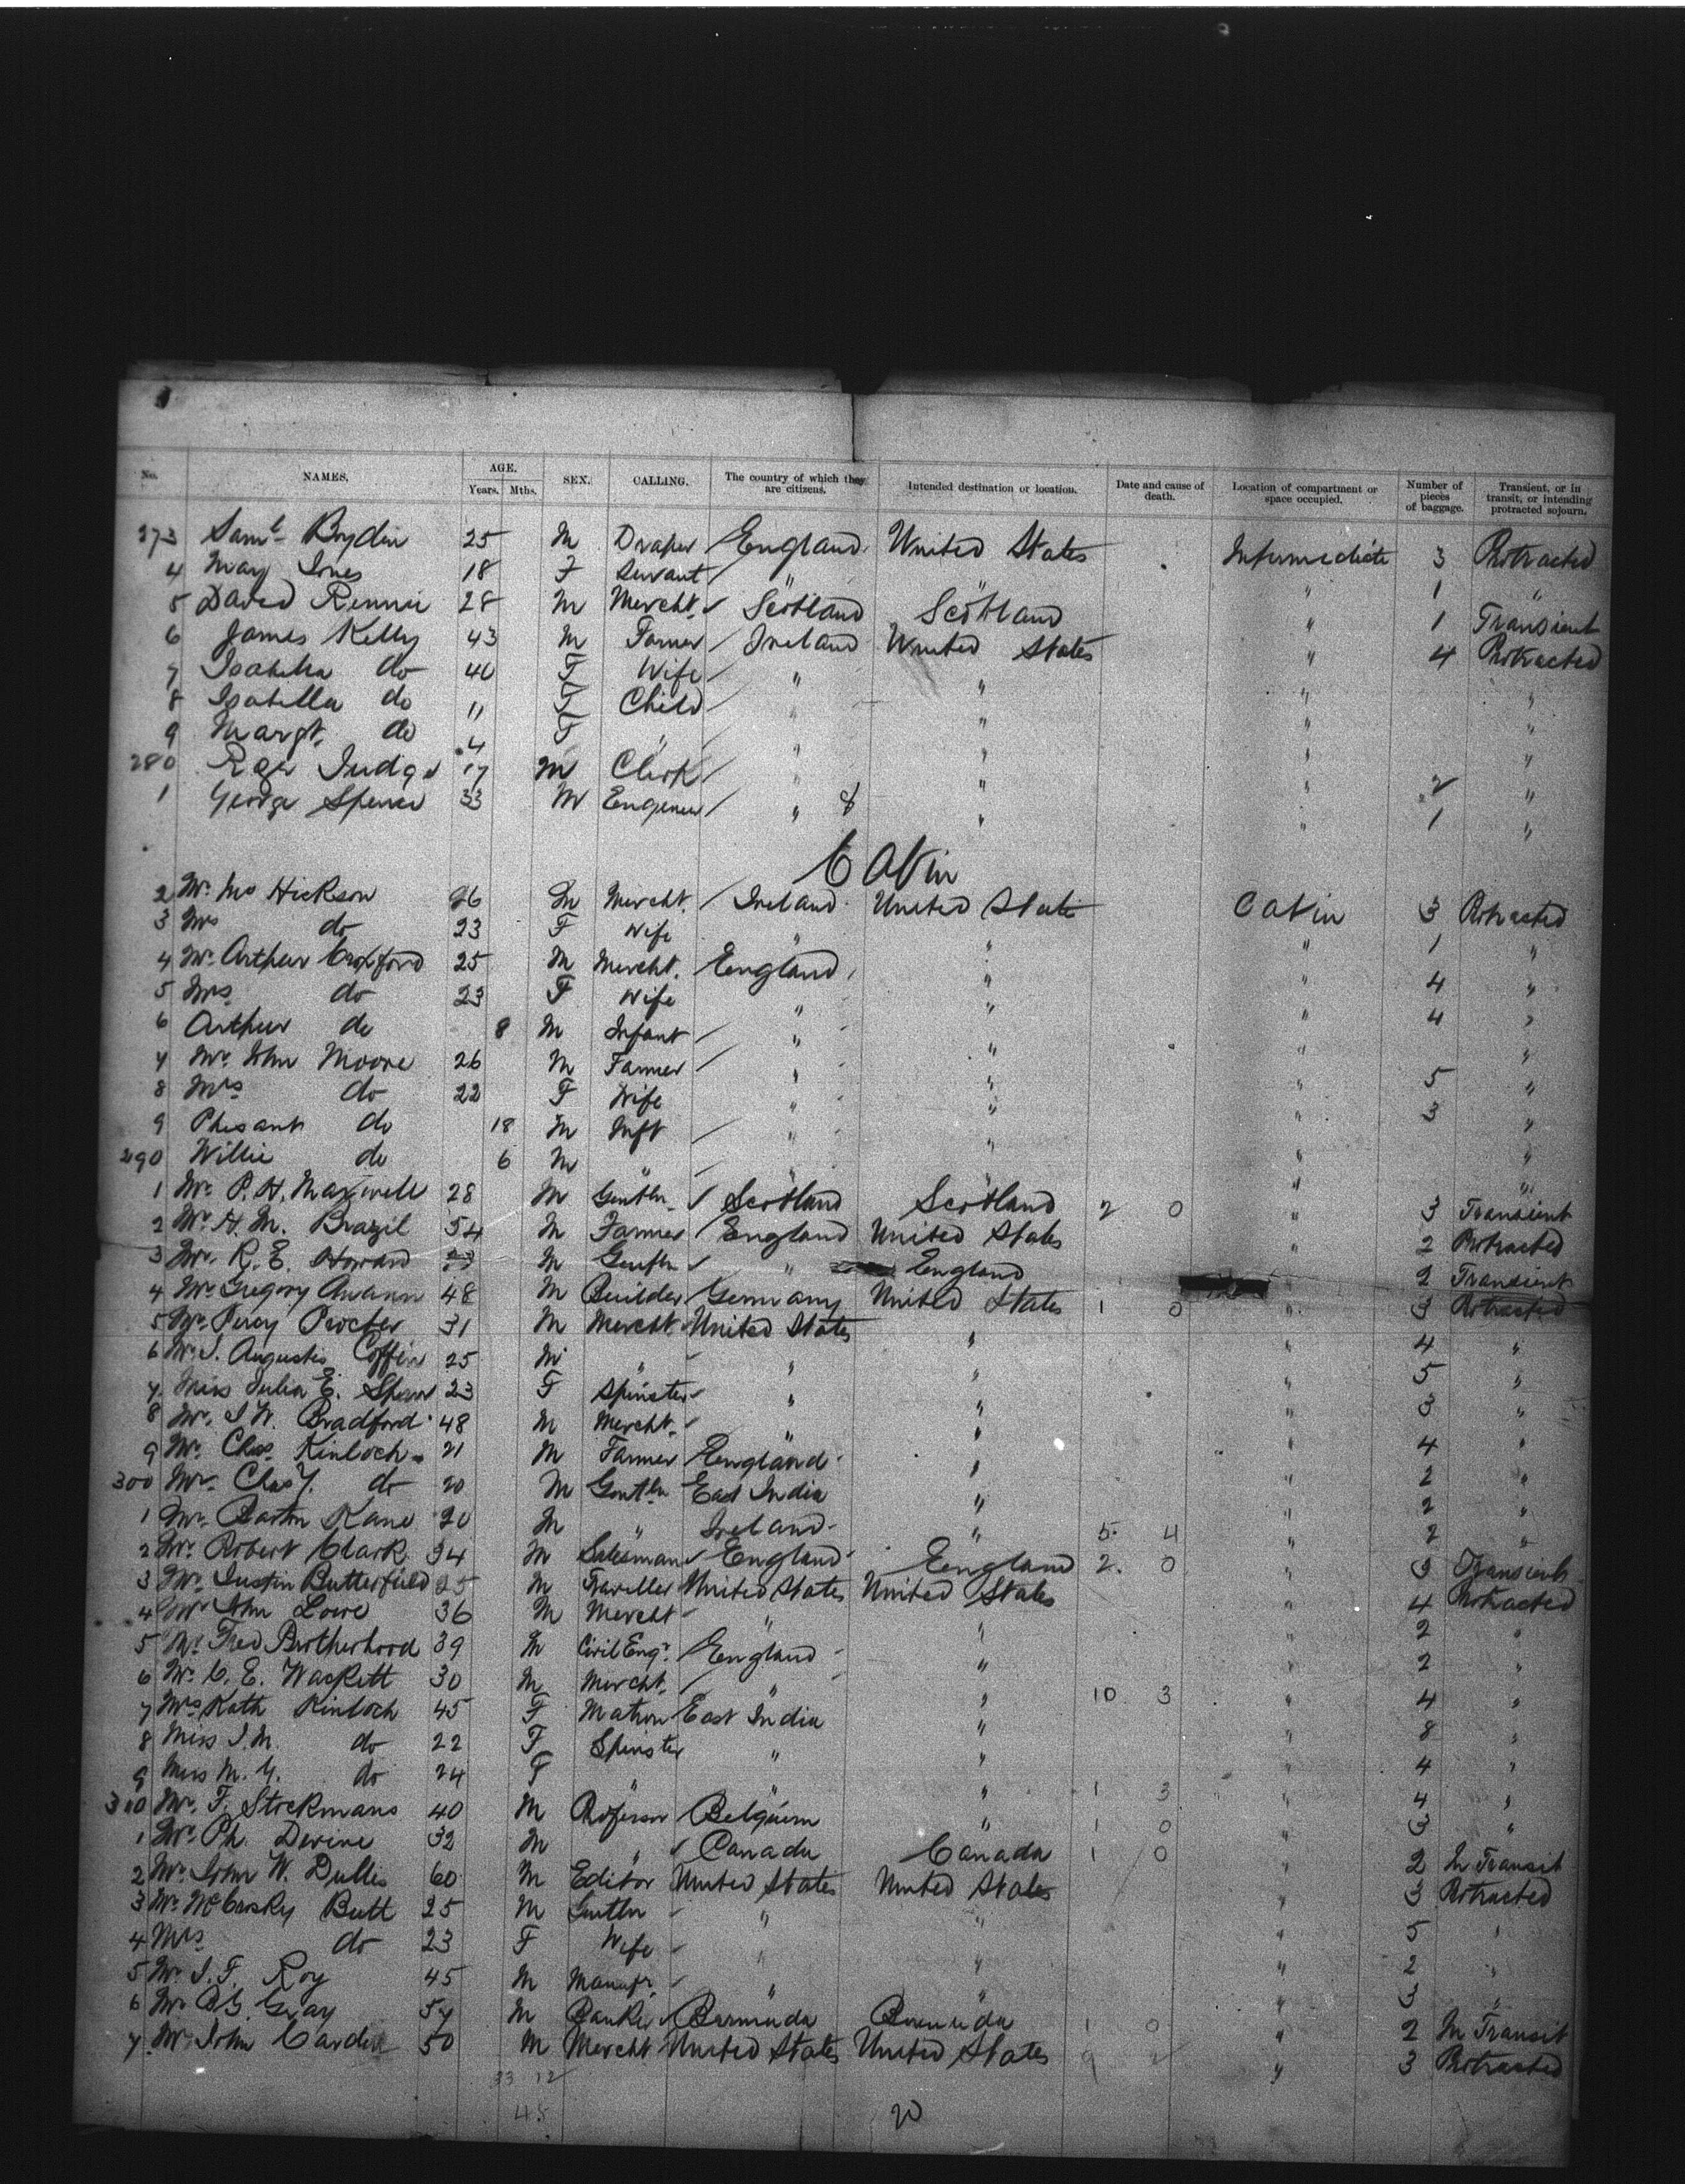 No. NAMES. AGE. Years. Mths. SEX. CALLING. The country of which they are citizens. Intended destination or location. Date and cause of death. Location of compartment or space occupied. Number of pieces of baggage. Transient, or in transit, or intending protracted sojourn.
273 Saml Brydin 25 M Draper England United States Intermediate 3 Protracted
4 Mary Jones 18 F Servant " " " 1 "
5 David Rennie 28 M Mercht. Scotland Scotland " 1 Transient
6 James Kelly 43 M Farmer Ireland United States " 4 Protracted
7 Isabella do 40 F Wife " " " "
8 Isabella do 11 F Child " " " "
9 Margt. do 4 F " " " " "
280 Judge 17 M Clerk " " " 2 "
1 George Spence 33 M Engineer " 8 " " 1 "
Cabin
2 Mr. Hickson 26 M Mercht. Ireland United States Cabin 3 Protracted
3 Mrs do 23 F Wife " " " 1 "
4 Mr. Arthur Croxford 25 M Mercht. England " " 4 "
5 Mrs. do 23 F Wife " " " 4 "
6 Arthur do 8 M Infant " " " "
7 Mr. John Moore 26 M Farmer " " " 5 "
8 Mrs do 22 F Wife " " " 3 "
9 do 18 M Inft " " " "
290 Willie do 6 M " " " " "
1 Mr. P. H. Maxwell 28 M Gentln. Scotland Scotland 2 0 " 3 Transient
2 Mr. H. M. Brazil 54 M Farmer England United States " 2 Protracted
3 Mr. R. E. Howard 23 M Gentln " England " 2 Transient
4 Mr. Gregory 48 M Builder Germany United States 1 0 " 3 Protracted
5 Mr. Percy Procter 31 M Mercht. United States " " 4 "
6 Mr. J. Augustis Coffin 25 M " " " " 5 "
7 Miss Julia E. 23 F Spinster " " " 3 "
8 Mr. J. W. Bradford 48 M Mercht. " " " 4 "
9 Mr. Chas. Kinloch 21 M Farmer England " " 2 "
300 Mr. Chas Y. do 20 M Gentln East India " " 2 "
1 Mr. Barton Kane 20 M " Ireland " 5 4 " 2 "
2 Mr. Robert Clark 34 M Salesman England England 2. 0 " 3 Transient
3 Mr. Justin Butterfield 25 M Traveller United States United States " 4 Protracted
4 Mr John Lowe 36 M Mercht " " " 2 "
5 Mr. Fred Brotherhood 39 M Civil Engr. England " " 2 "
6 Mr. C. E. Wackett 30 M Mercht. " " 10 3 " 4 "
7 Mrs Kath Kinloch 45 F Matron East India " " 8 "
8 Miss J. M. do 22 F Spinster " " " 4 "
9 Miss M. Y. do 24 F " " " 1 3 " 4 "
310 Mr. F. Stockmans 40 M Professor Belguim " 1 0 " 3 "
1 Mr. Ph. Devine 32 M " Canada Canada 1 0 " 2 In Transit
2 Mr. John W. Dulles 60 M Editor United States United States " 3 Protracted
3 Mr. McCrosky Butt 25 M Gentln " " " 5 "
4 Mrs do 23 F Wife " " " 2 "
5 Mr. J. F. Roy 45 M Manufr. " " " 3 "
6 Mr. Gray 57 M Banker Barmuda Bermuda 1 0 " 2 In Transit
7 Mr. John Carden 50 M Mercht United States United States 9 2 " 3 Protracted
33 12
45
20